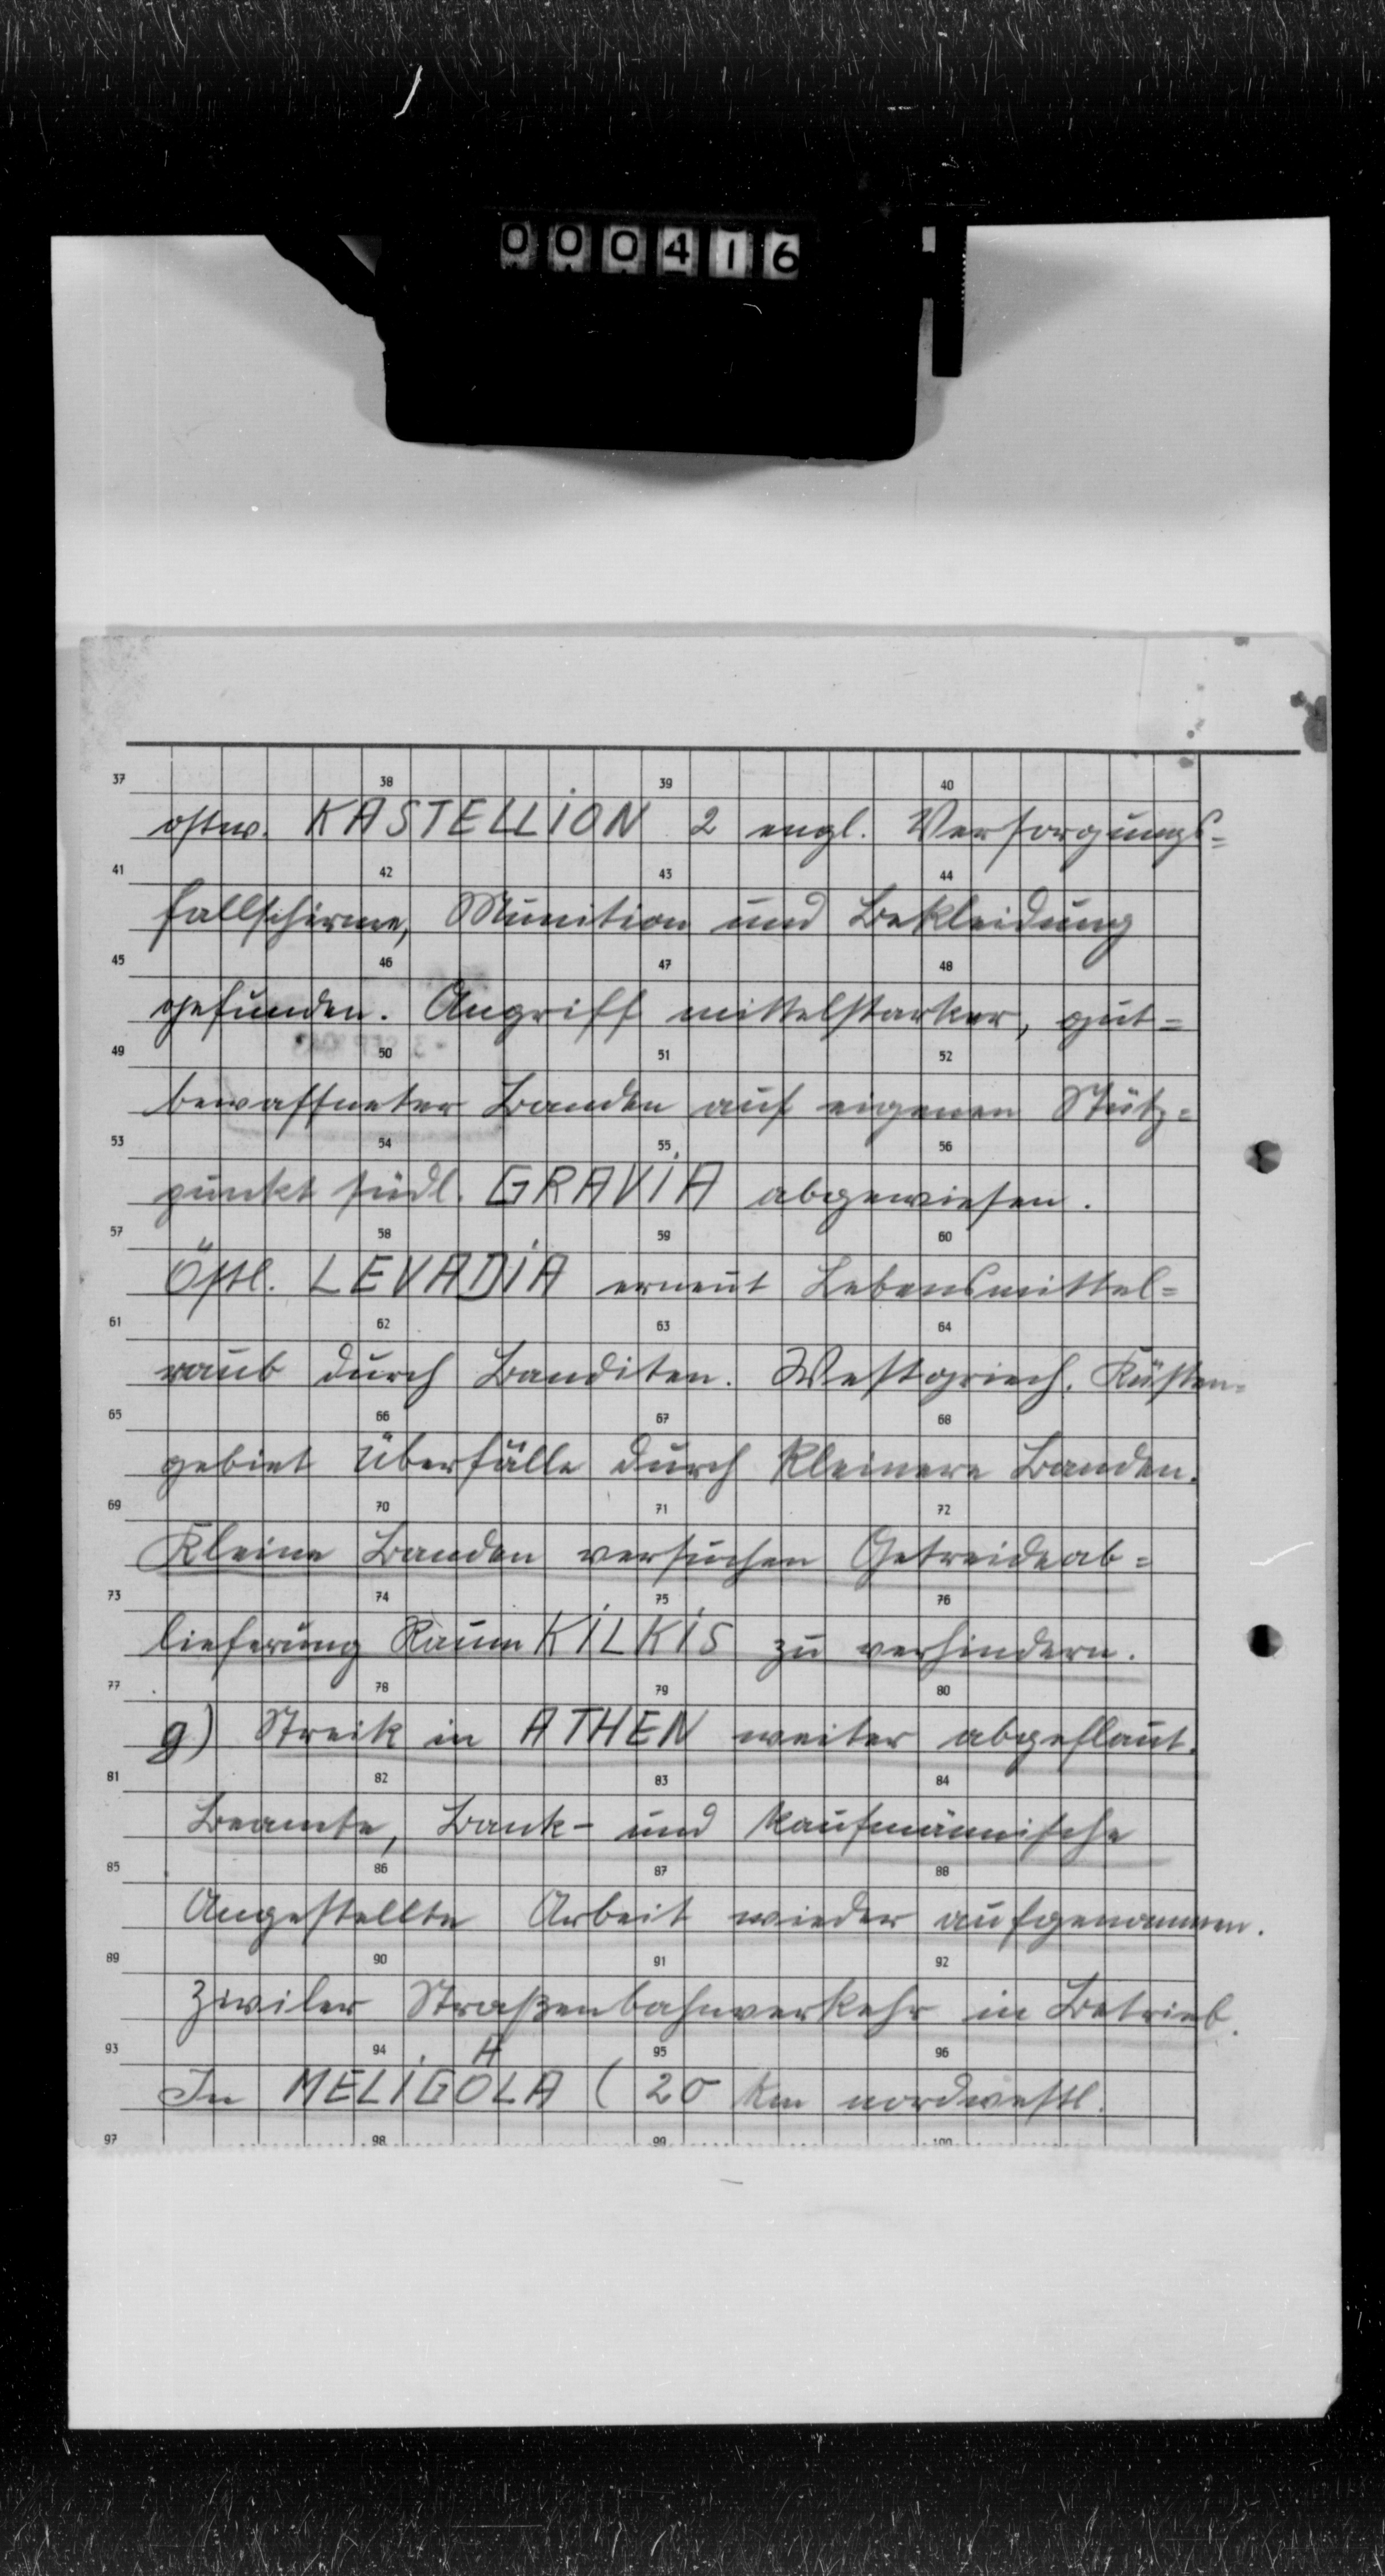 000416
37 38 39 40
ostw. KASTELLION 2 engl. Versorgungs=
41 42 43 44
fallschirme, Munition und Bekleidung
45 46 47 48
gefunden. Angriff mittelstarker, gut=
49 50 51 52
bewaffneter Banden auf eigenen Stütz=
53 54 55 56
punkt südl. GRAVIA abgewiesen.
57 58 59 60
Östl. LEVADIA erneut Lebensmittel=
61 62 63 64
raub durch Banditen. Westgriech. Küsten=
65 66 67 68
gebiet Überfälle durch kleinere Banden.
69 70 71 72
Kleine Banden versuchen Getreideab=
73 74 75 76
lieferung Raum KILKIS zu verhindern.
77 78 79 80
g) Streik in ATHEN weiter abgeflaut.
81 82 83 84
Beamte, Bank- und kaufmännische
85 86 87 88
Angestellte Arbeit wieder aufgenommen.
89 90 91 92
Ziviler Straßenbahnverkehr in Betrieb.
93 94 95 96
A
In MELIGOLA (20 km nordwestl.
97 98 99 100